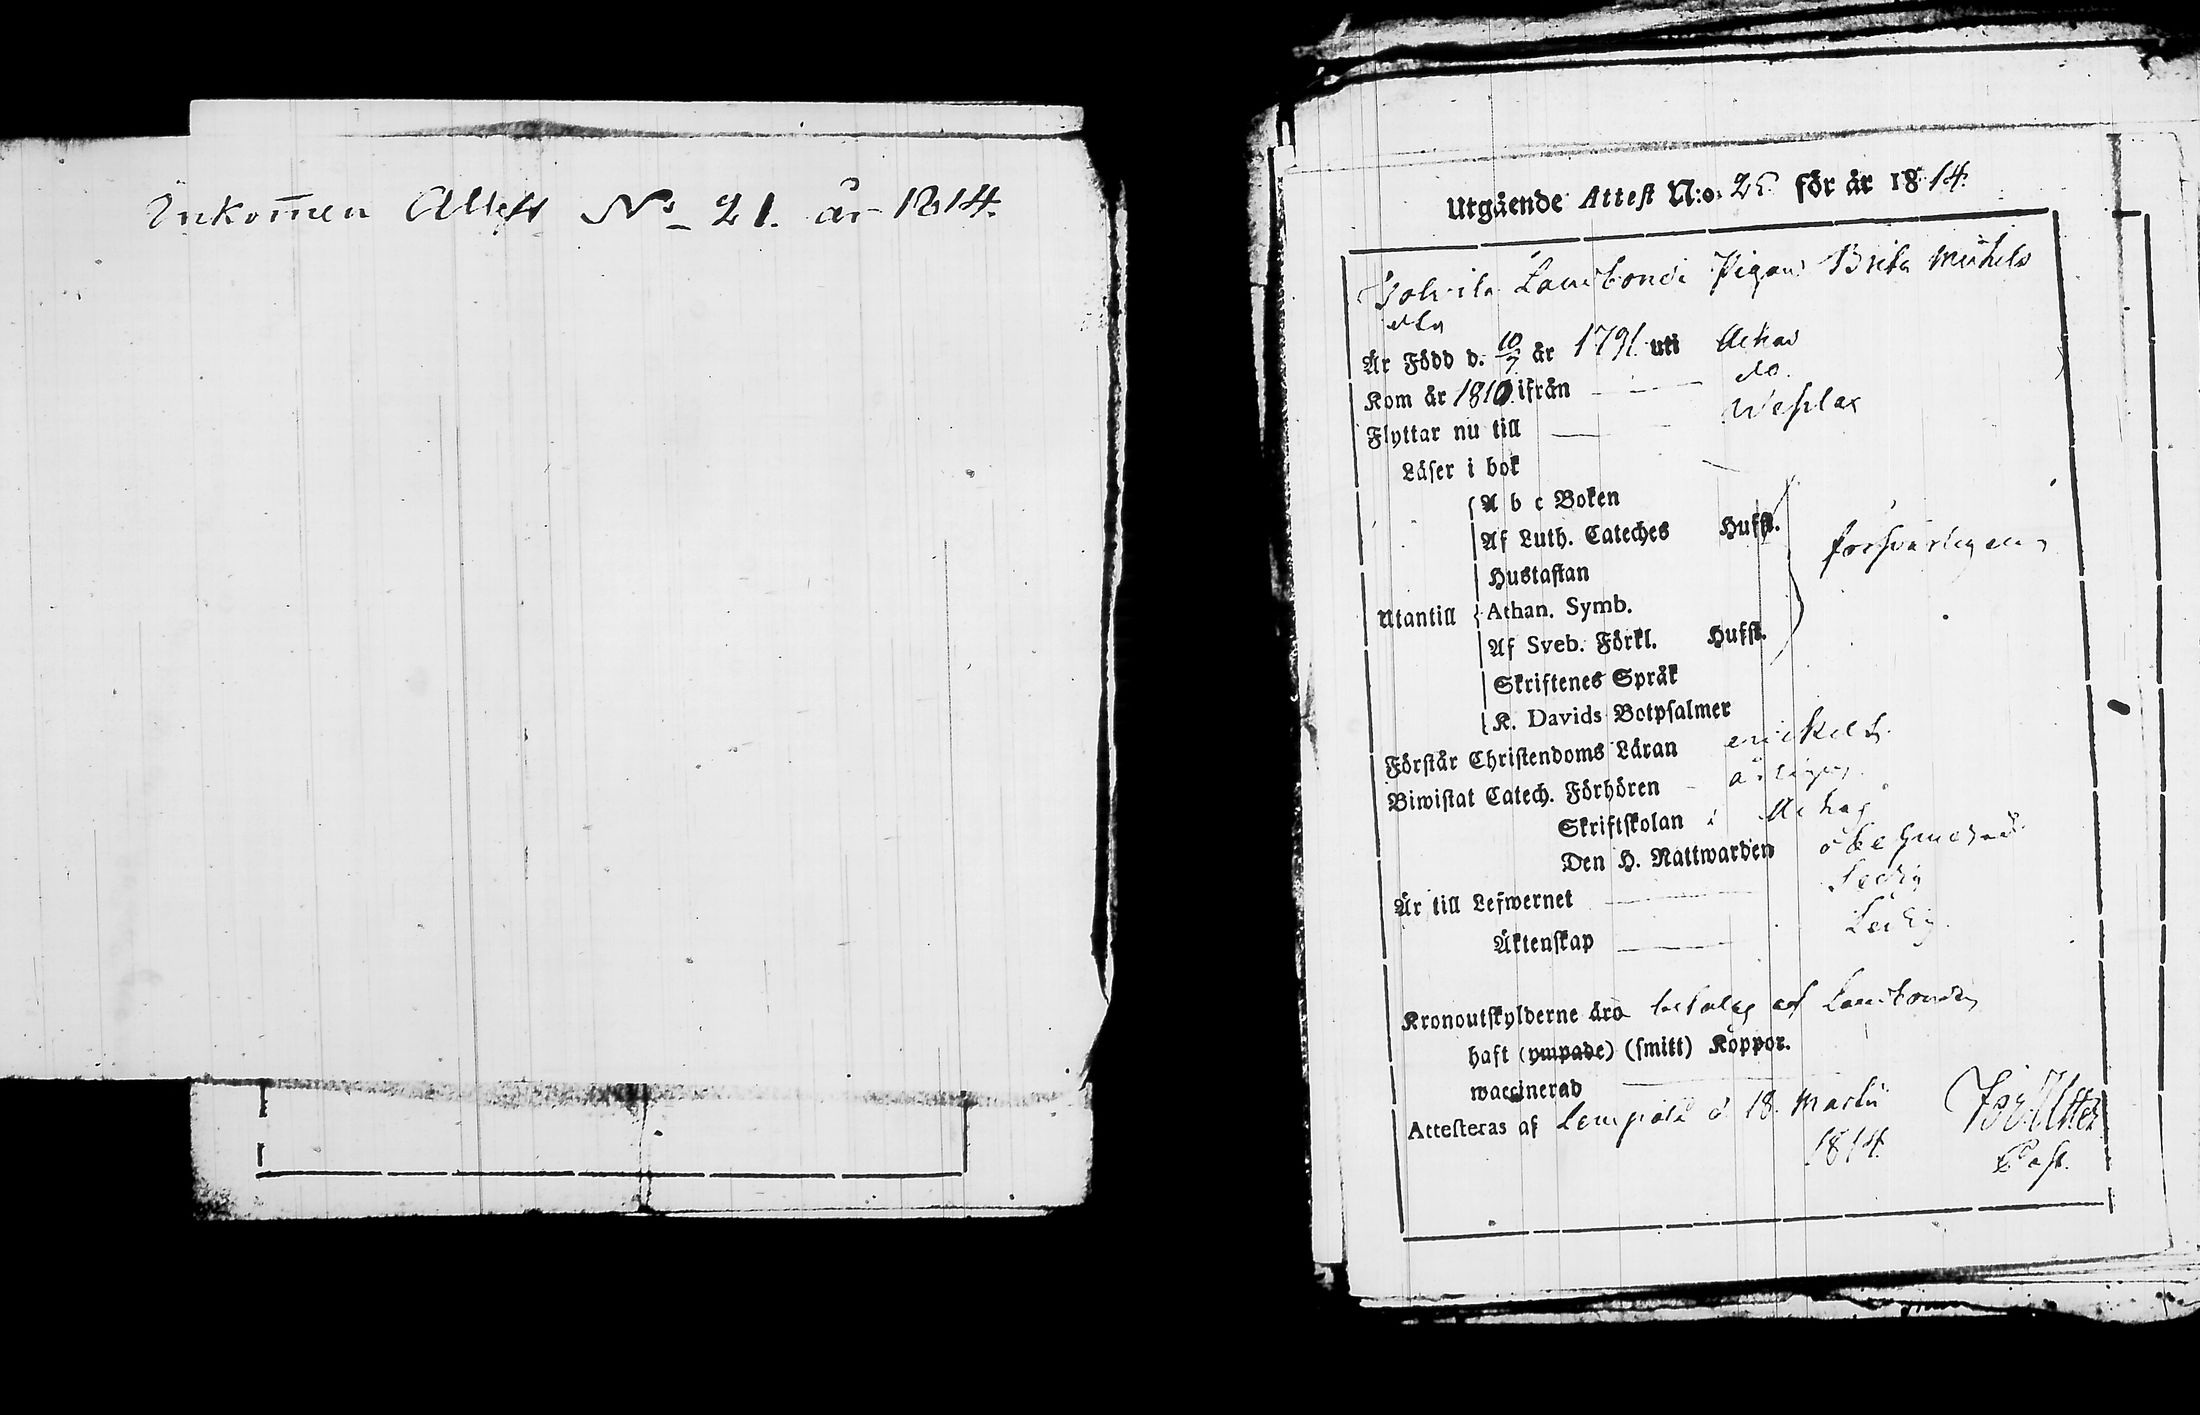 Inkom̄en Attest No 21. år 1814.
Utgående Attest N:o 25 för år 1814.
Lansbonde Pigan Brita Michels
dtr
Är Född d. 10/7 år 1791. uti Achas
Kom år 1810 ifrån do.
Flyttar nu till Wesilax
Läser i bok
A b c Boken
Af Luth. Cateches Hufst.
försvarligen
Hustaflan
Utantill Athan. Symb.
Af Sveb. Förkl. Hufst.
Skriftenes Språk
K. Davids Botpsalmer
Förstår Christendoms Läran enskelt
Biwistat Catech. Förhören årligen
Skriftskolan i Achas
Den H. Nattwarden
Är till Lefwernet
Äktenskap Ledig.
Kronoutskylderne äro betalas af Lansbonden
haft (ympade) (smitt) Koppor.
waccinerad
Attesteras af Lempälä d 18 Martii
1814.
Past.